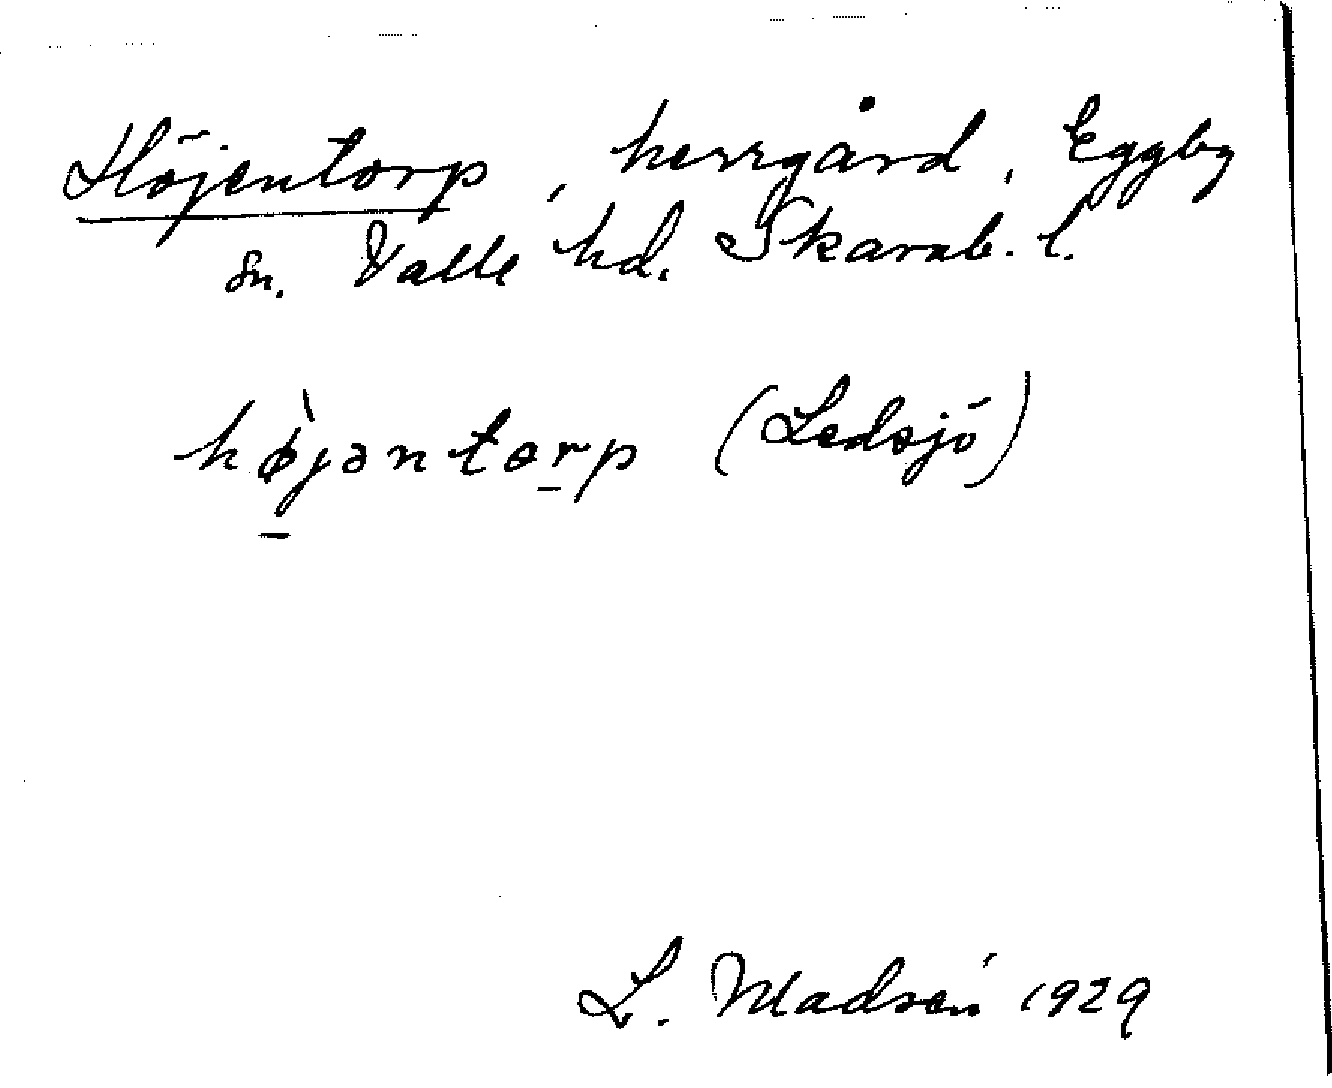 Höjentorp, herrgård, Eggby
sn. Valle hd. Skarab. l.
hø̀jəntorp (Ledsjö)
L. Madsén 1929